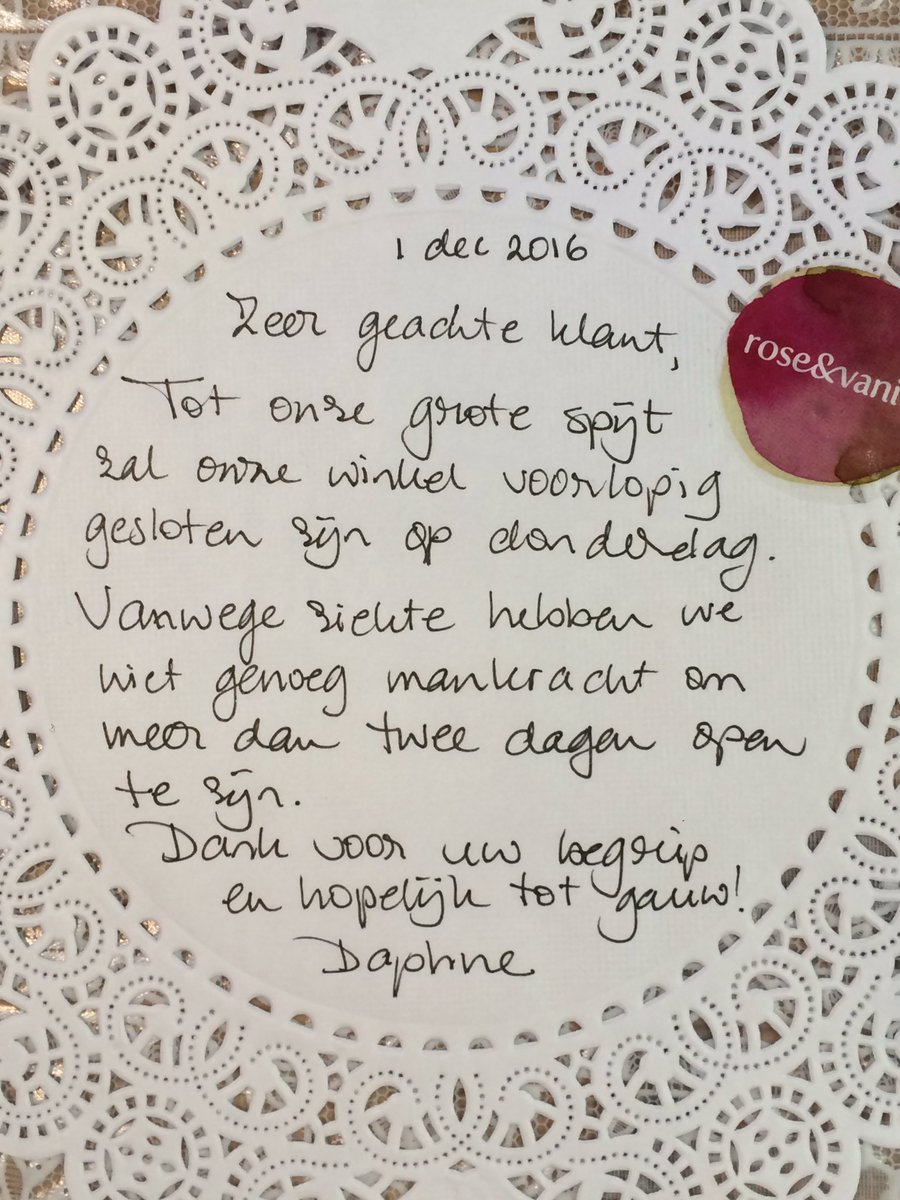 1 dec 2016
Zeer geachte klant,
rose&vani
Tot onze grote spijt
zal onze winkel voorlopig
gesloten zijn op donderdag.
Vanwege ziekte hebben we
niet genoeg mankracht om
meer dan twee dagen open
te zijn.
Dank voor uw begrip
en hopelijk tot gauw!
Daphne